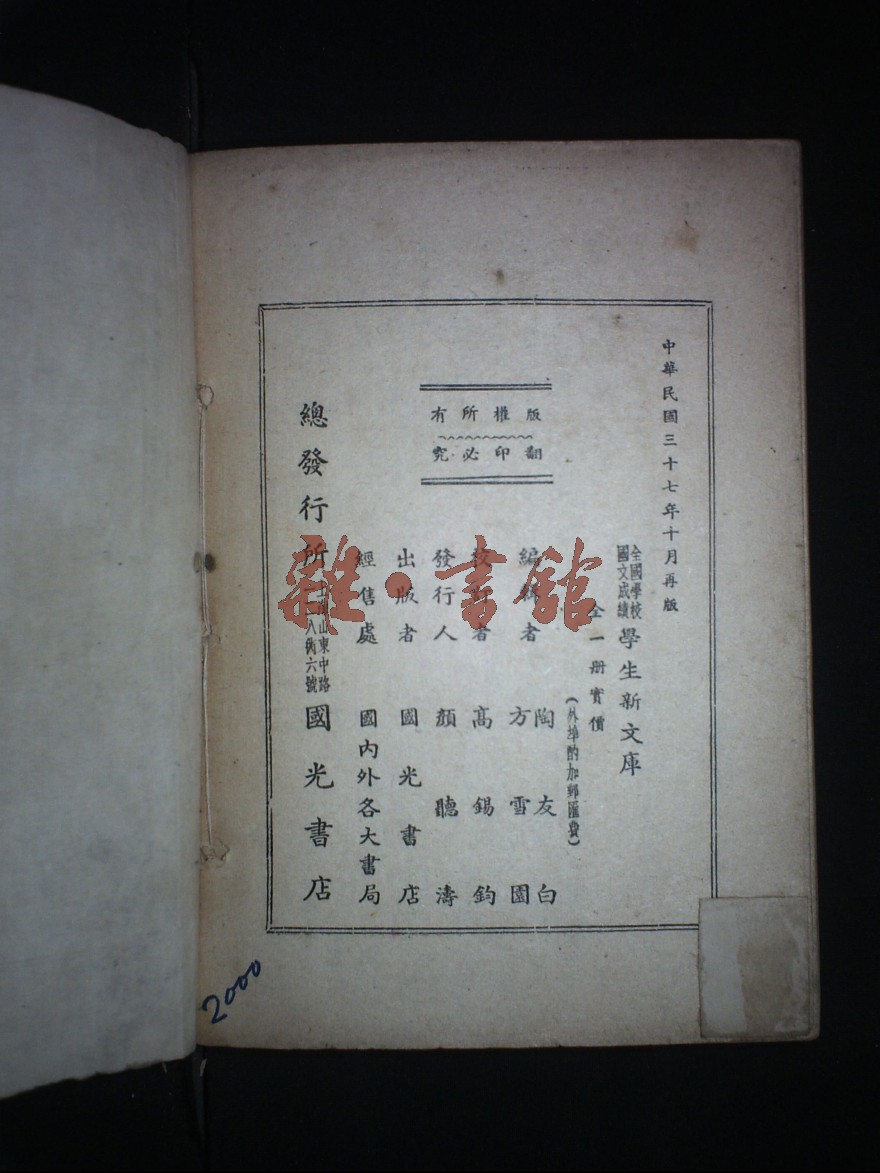 中華民國三十七年十月再版
全國學校
國文成績
學生新文庫
全一册實價
(外埠酌加郵匯費)
版權所有
翻印必究
編輯者 陶友白
方雪園
校訂者 高錫鈞
發行人 顏聽濤
出版者 國光書店
經售處 國內外各大書局
總發行所
山東中路
八衖六號
國光書店
雜·書館
2000